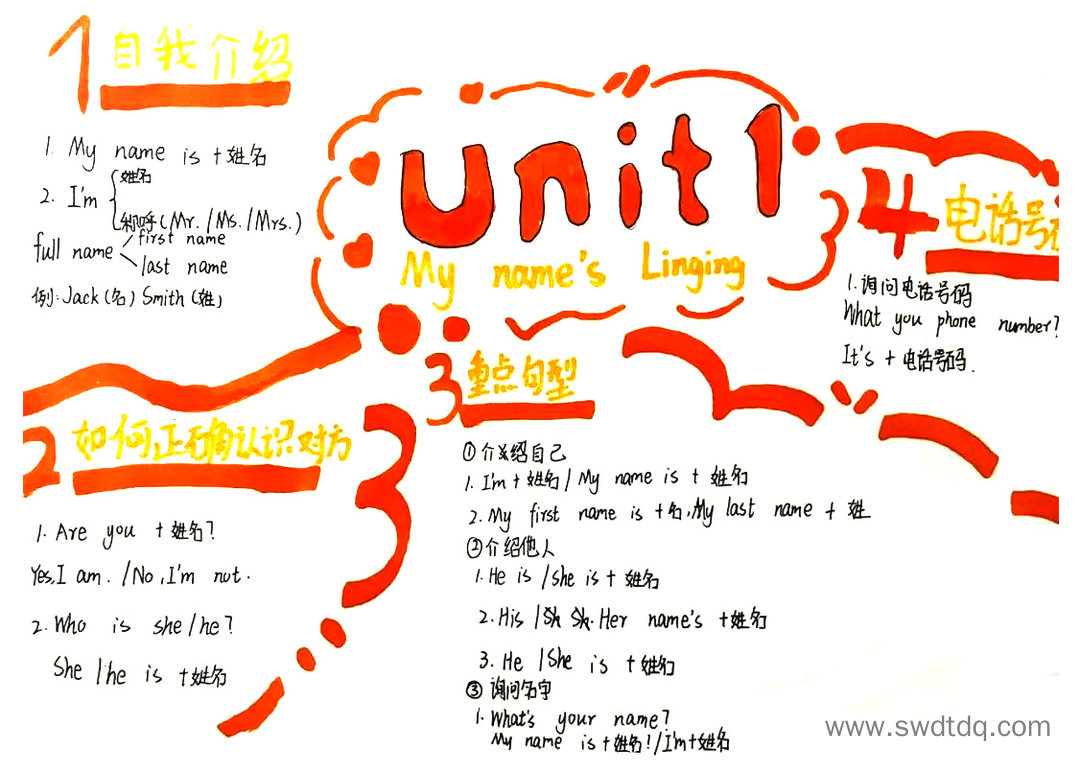 unit1
My name's Linging
1 自我介绍
1. My name is +姓名
2. I'm
姓名
称呼(Mr./Ms./Mrs.)
full name
first name
last name
例:Jack(名) Smith(姓)
2 如何正确认识对方
1. Are you +姓名?
Yes,I am. /No,I'm not.
2. Who is she/he?
She/he is +姓名
3
3 重点句型
①介绍自己
1. I'm+姓名/My name is + 姓名
2. My first name is +名,My last name + 姓
②介绍他人
1. He is/she is+姓名
2. His / Her name's +姓名
3. He/She is +姓名
③ 询问名字
1. What's your name?
My name is+姓名!/I'm+姓名
4 电话号码
1.询问电话号码
What you phone number?
It's + 电话号码.
www.swdtdq.com